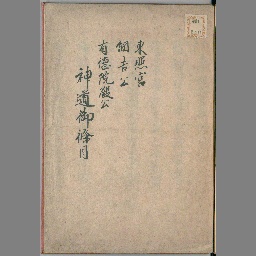 東照宮
綱吉公
有徳院殿公
神道御條目